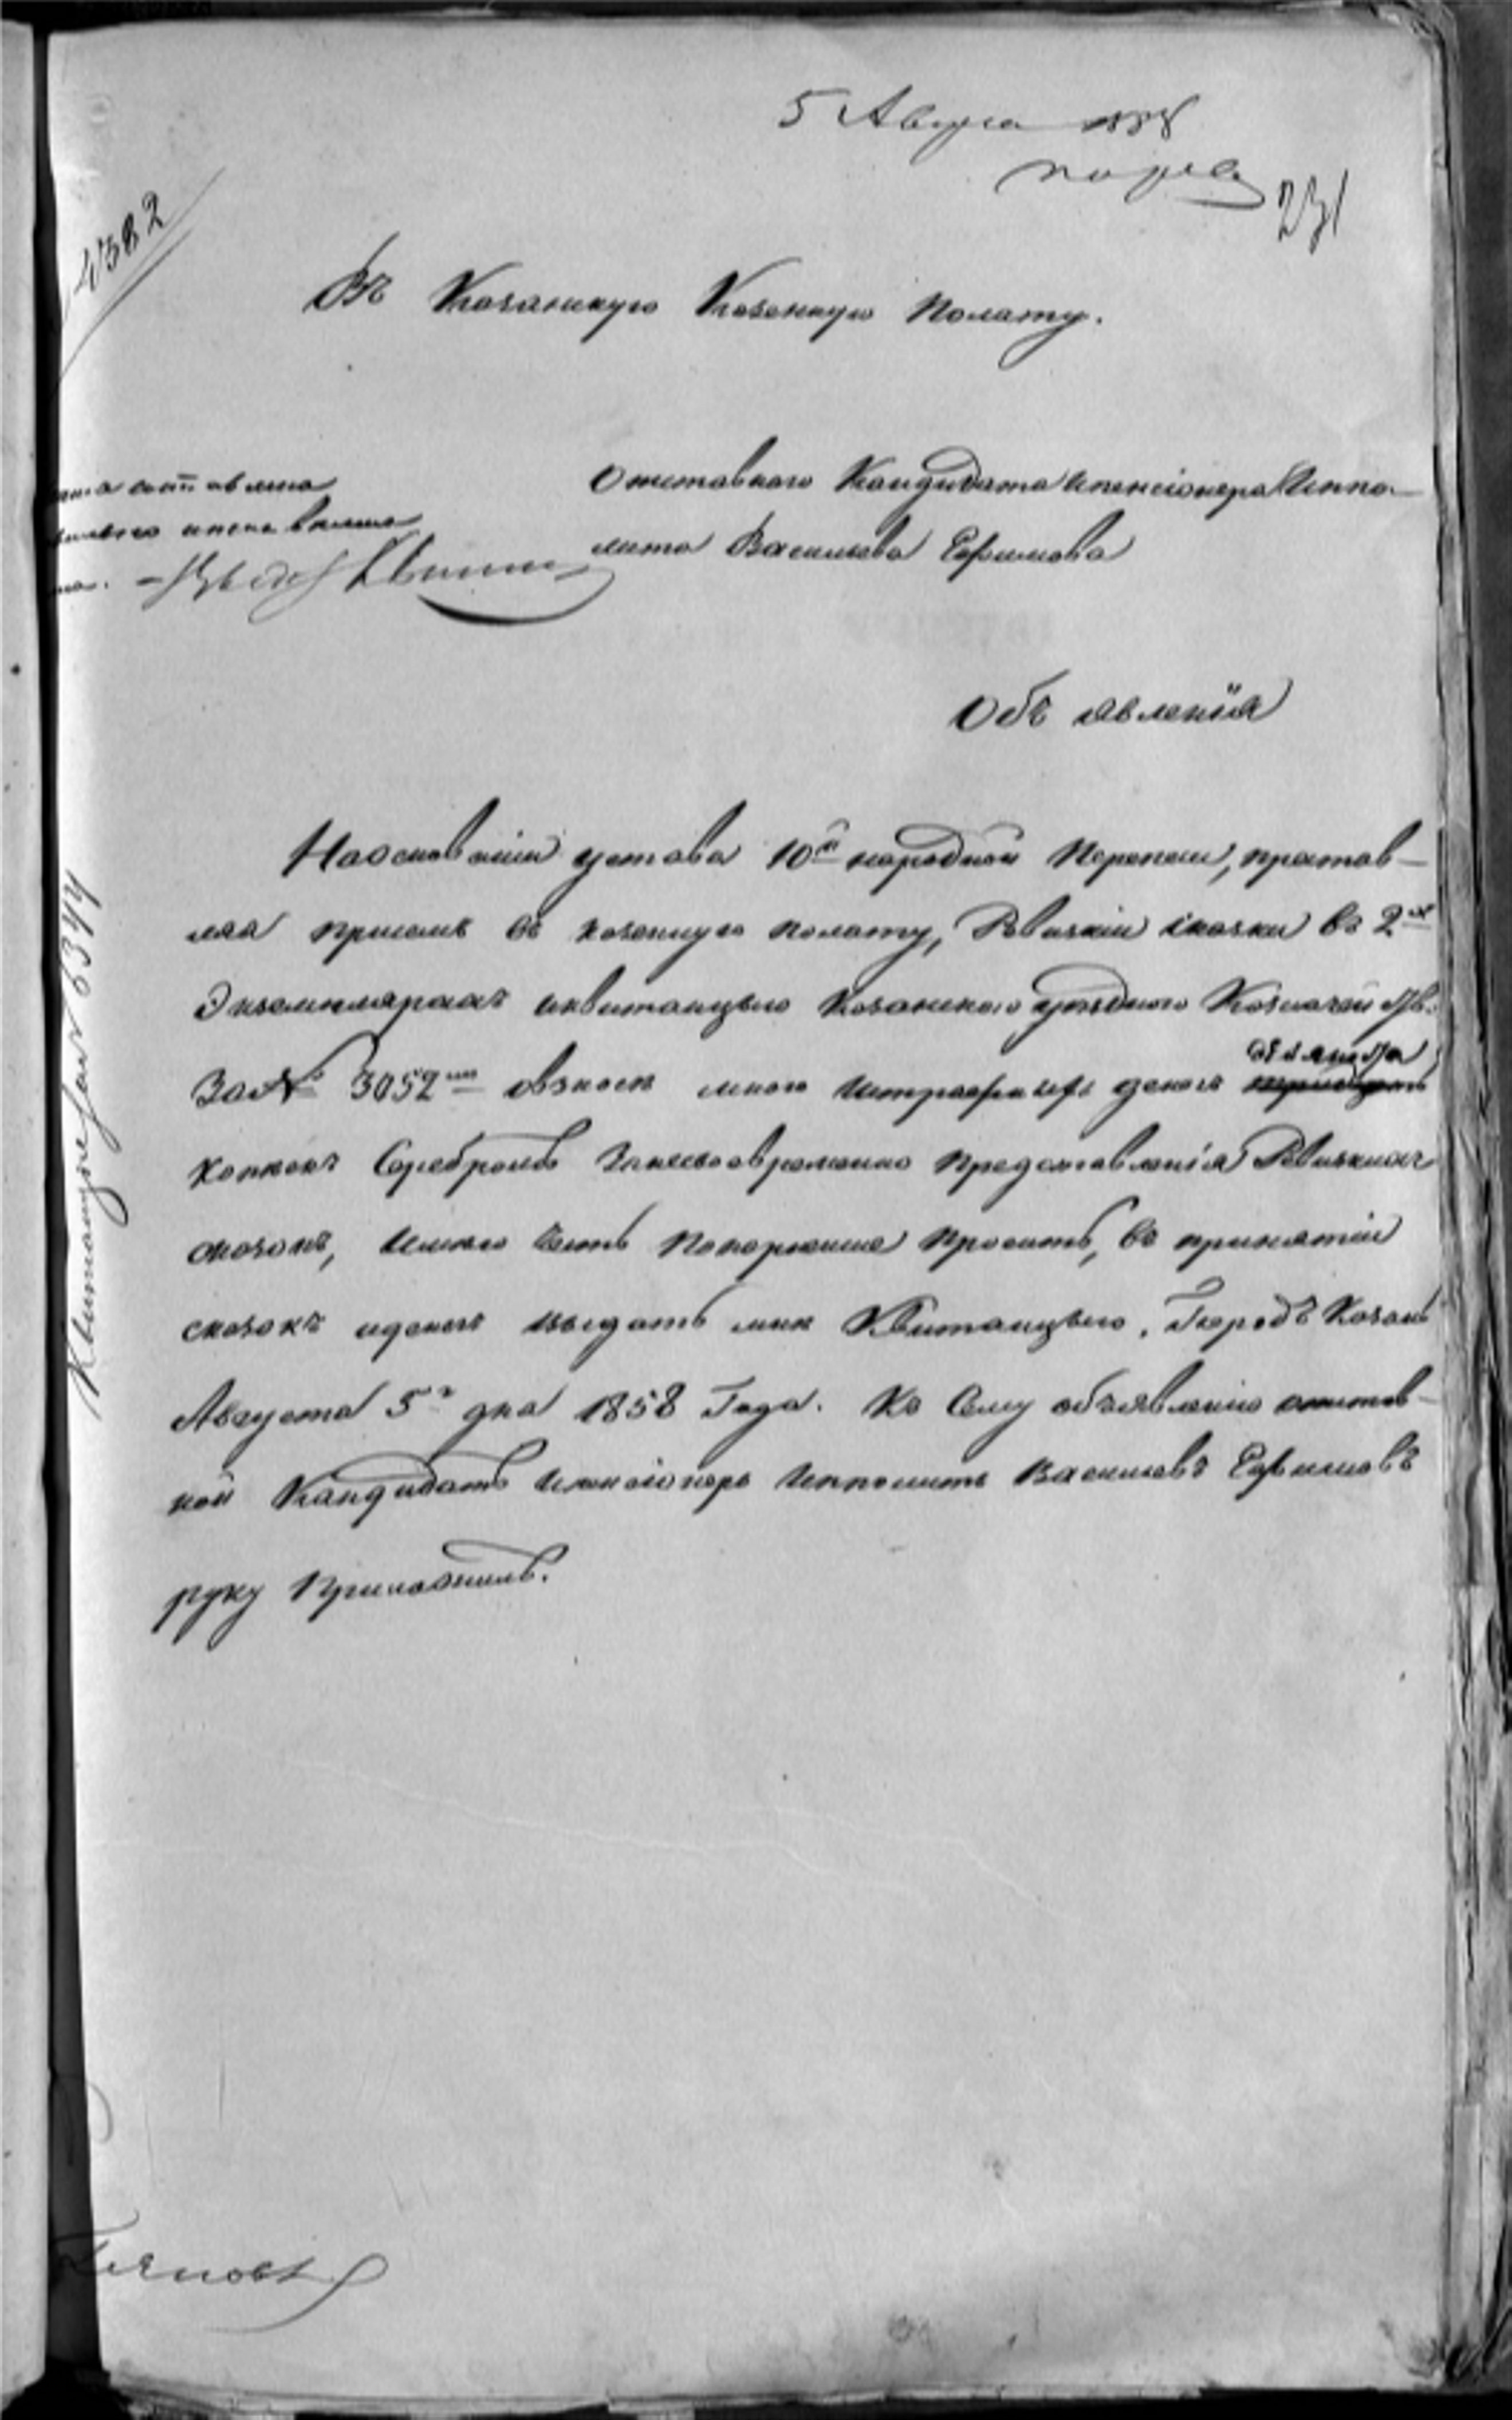 5 Августа 1858
231
4382
Въ Казанскую Казенную Полату.
Отставнаго Кандидата ипенсіонера Иппо-
лита Васильева Ефимова
Объ явленія
Наоснованіи устава 10й народной Переписи, пратав-
ляя присемъ въ казенную полату, Ревизкіи сказки въ 2хъ
Экземплярахъ иквитанцыю Казанскаго уезднаго Казначейства
За№ 3052мъ овзносе мною Штрафныхъ денегъ
копеекъ Серебромъ Занесвоевременно Предоставленія Ревизкихъ
сказокъ, Имею Честь Покорнеише Просить, въ принятіи
сказокъ иденегъ выдать мне Квитанцыю. Городъ Казань
Августа 5го дня 1858 Года. Къ Сему объявленію отстав-
ной Кандидатъ Ипенсіонеръ Ипполитъ Васильевъ Ефимовъ
руку Приложилъ.
Квитанція 6344